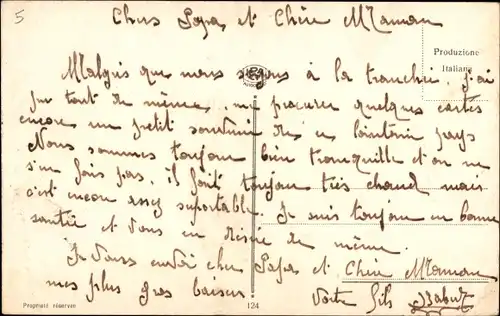 5
Chers Papa et Chère Maman
Produzione
Italiana
Malgrés que nous soyons à la tranchée. J'ai
pu tout de même, me procurer quelques cartes
encore un petit souvenir de ce lointain pays
Nous sommes toujours bien tranquille et on ne
s'en fais pas. il fait toujours très chaud mais
c'est encore assez suportable. Je suis toujours en bonne
santée et vous en désire de même.
Je vous envoi cher Papa et Chère Maman
mes plus gros baisers. Votre fils
Propriété réservée
124